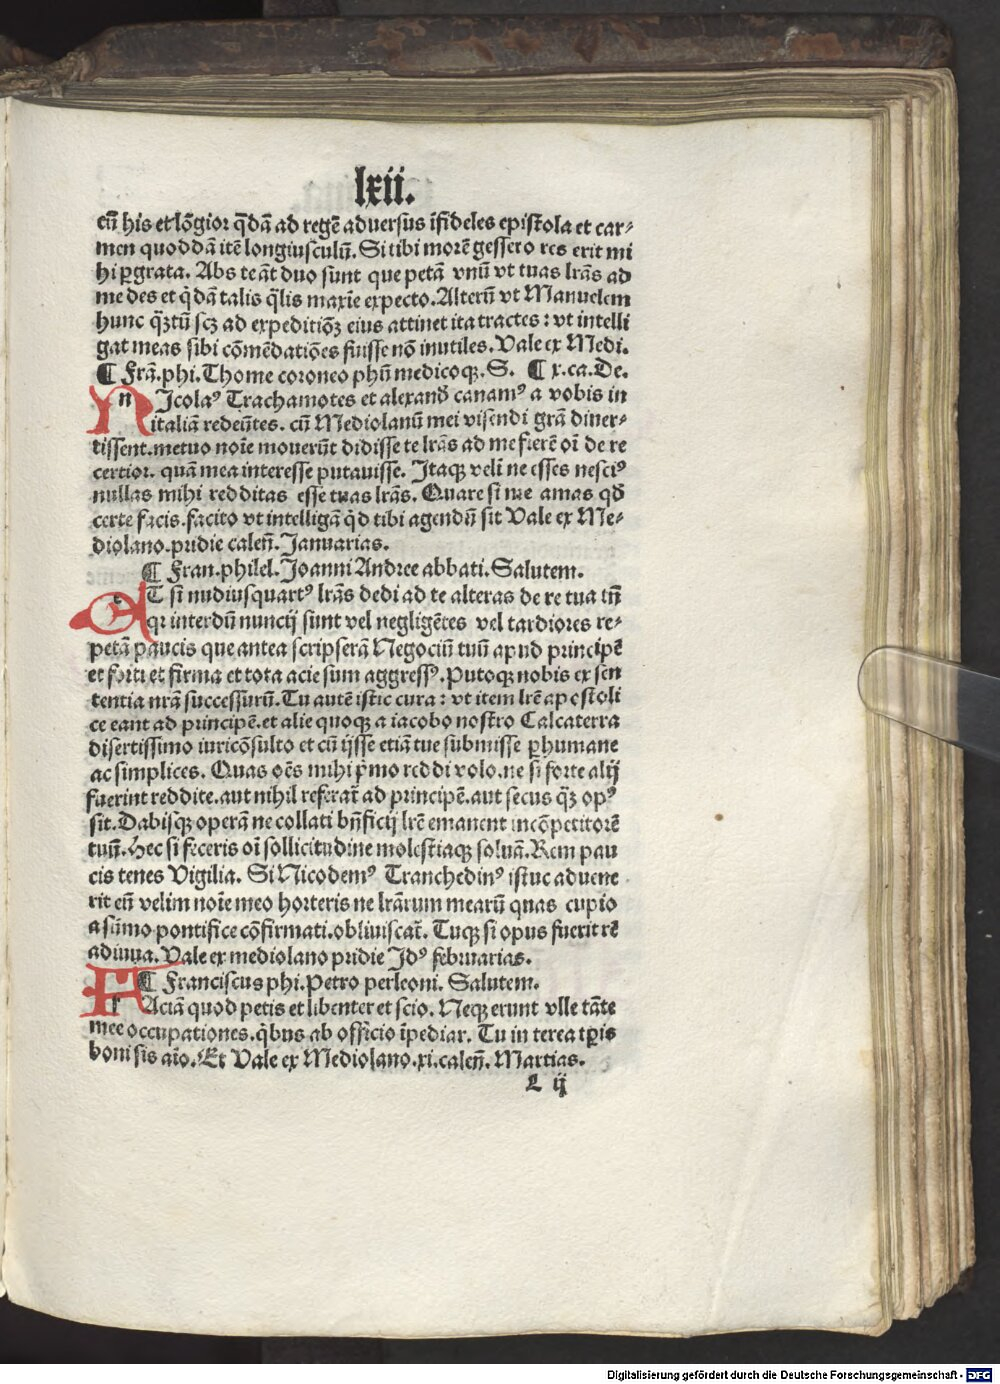 lxii.
cū his et lōgior q̄dā ad regē aduersus īfideles epistola et car⸗
men quoddā itē longiusculū. Si tibi morē gessero res erit mi
hi ꝑgrata. Abs te āt duo sunt que petā vnū vt tuas lr̄as ad
me des et q̇dā talis q̄lis maxīe expecto. Alterū vt Manuelem
hunc q̄ꝫtū scꝫ ad expeditiōꝫ eius attinet ita tractes: vt intelli
gat meas sibi cōmēdatiōes fuisse nō inutiles. Vale ex Medi.
¶ Frā. phi. Thome coroneo phū medicoqꝫ. S. ¶ x. ca. De.
n Icolaꝰ Trachamotes et alexanđ canamꝰ a vobis in
italiā redeūtes. cū Mediolanū mei visendi grā diuer⸗
tissent. metuo noīe mouerūt didisse te lr̄as ad me fierē oī de re
certior. quā mea interesse putauisse. Itaqꝫ velī ne esses nesciꝰ
nullas mihi redditas esse tuas lr̄as. Quare si me amas qđ
certe facis. facito vt intelligā q̇d tibi agendū sit Vale ex Me⸗
diolano. pridie caleñ. Januarias.
¶ Fran. philel. Joanni Andree abbati. Salutem.
e T si nudiusquartꝰ lr̄as dedi ad te alteras de re tua tñ
qꝛ interdū nuncij sunt vel negligētes vel tardiores re⸗
petā paucis que antea scripserā Negociū tuū apud principē
et forti et firma et tota acie sum aggressꝰ. Putoqꝫ nobis ex sen
tentia nrā successurū. Tu autē istic cura: vt item lr̄e apostoli
ce eant ad principē. et alie quoqꝫ a iacobo nostro Calcaterra
disertissimo iuricōsulto et cū ijsse etiā tue submisse ꝑhumane
ac simplices. Quas oēs mihi p̄mo reddi volo. ne si forte alij
fuerint reddite. aut nihil referat̄ ad principē. aut secus q̄ꝫ opꝰ
sit. Dabisqꝫ operā ne collati bn̄ficij lr̄e emanent in cōpetitorē
tuū. Hec si feceris oī sollicitudine molestiaqꝫ soluā. Rem pau
cis tenes Vigilia. Si Nicodemꝰ Tranchedinꝰ istuc aduene
rit eū velim noīe meo horteris ne lr̄arum mearū quas cupio
a sūmo pontifice cōfirmati. obliuiscat̄. Tuqꝫ si opus fuerit rē
adiuua. Vale ex mediolano pridie Jdꝰ februarias.
¶ Franciscus phi. Petro perleoni. Salutem.
f Aciā quod petis et libenter et scio. Neqꝫ erunt vlle tāte
mee occupationes. q̇bus ab officio īpediar. Tu in terea tꝑis
boni sis aīo. Et Vale ex Mediolano. xi. caleñ. Martias.
L ij
Digitalisierung gefördert durch die Deutsche Forschungsgemeinschaft - DFG